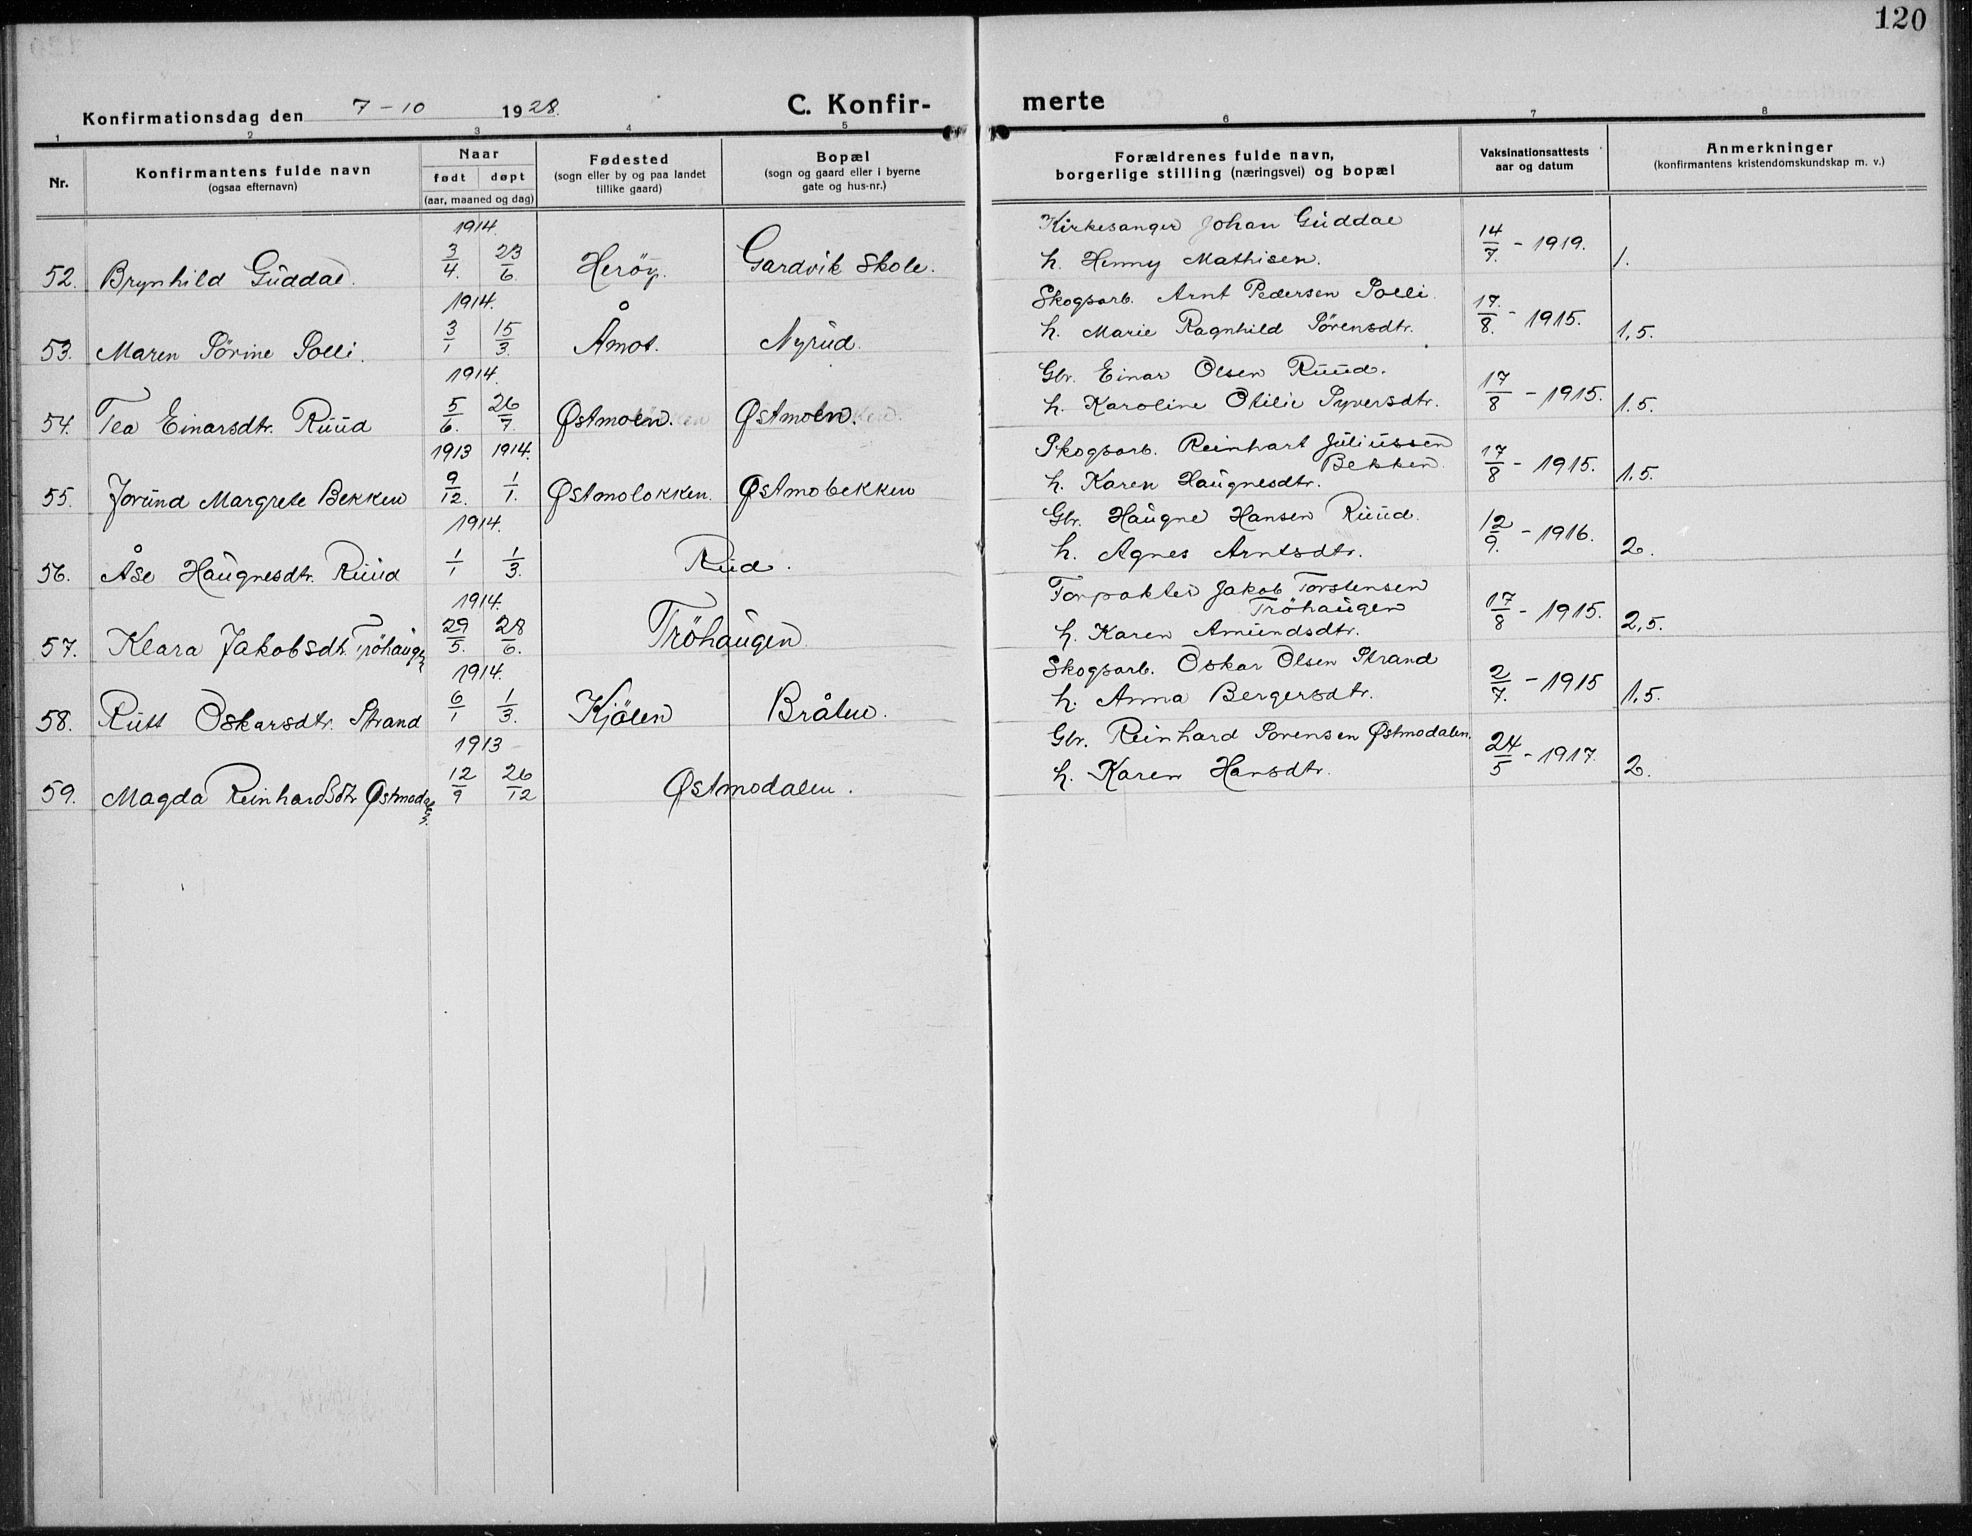 120
Konfirmationsdag den 7 - 10 1928. C. Konfir- merte
1 2 3 4 5 6 7 8
Nr. Konfirmantens fulde navn (ogsaa efternavn) Naar født døpt (aar, maaned og dag) Fødested (sogn eller by og paa landet tillike gaard) Bopæl (sogn og gaard eller i byerne gate og hus-nr.) Forældrenes fulde navn, borgerlige stilling (næringsvei) og bopæl Vaksinationsattests aar og datum Anmerkninger (konfirmantens kristendomskundskap m. v.)
1914. Kirkesanger Johan Guddal
52. Brynhild Guddal. 3/4. 23/6. Herøy. Gardvik Skole. h. Henny Mathisen. 14/7. - 1919. 1.
1914. Skogsarb. Arnt Pedersen Solli.
53. Maren Sörine Solli. 3/1 15/3. Åmot. Nyrud. h. Marie Ragnhild Sörensdtr. 17/8. - 1915. 1,5.
1914. Gbr. Einar Olsen Ruud.
54. Tea Einarsdtr. Ruud 5/6. 26/7. Østmoen. Østmoen. h. Karoline Otilie Syversdtr. 17/8 - 1915. 1.5.
1913 1914. Skogsarb. Reinhart Juliussen Bekken.
55. Jorund Margrete Bekken 9/12. 1/1. Østmolokken. Østmobekken h. Karen Haugnesdtr. 17/8 - 1915. 1.5.
1914. Gbr. Haugne Hansen Ruud.
56. Åse Haugnesdtr. Ruud 1/1 1/3. Rud. h. Agnes Arntsdtr. 12/9. - 1916. 2.
1914. Forpakter Jakob Torstensen Tröhaugen
57. Klara Jakobsdtr. Tröhaugen 29/5. 28/6. Tröhaugen. h. Karen Amundsdtr. 17/8 - 1915. 2,5.
1914. Skogsarb. Oskar Olsen Strand
58. Rutt Oskarsdtr. Strand 6/1 1/3. Kjölen Bråten. h. Anna Bergersdtr. 2/7. - 1915 1,5.
1913 Gbr. Reinhard Sorensen Østmodalen.
59. Magda Reinhardsdtr. Østmodalen. 12/9 26/12 Østmodalen. h. Karen Hansdtr. 24/5 - 1917. 2.